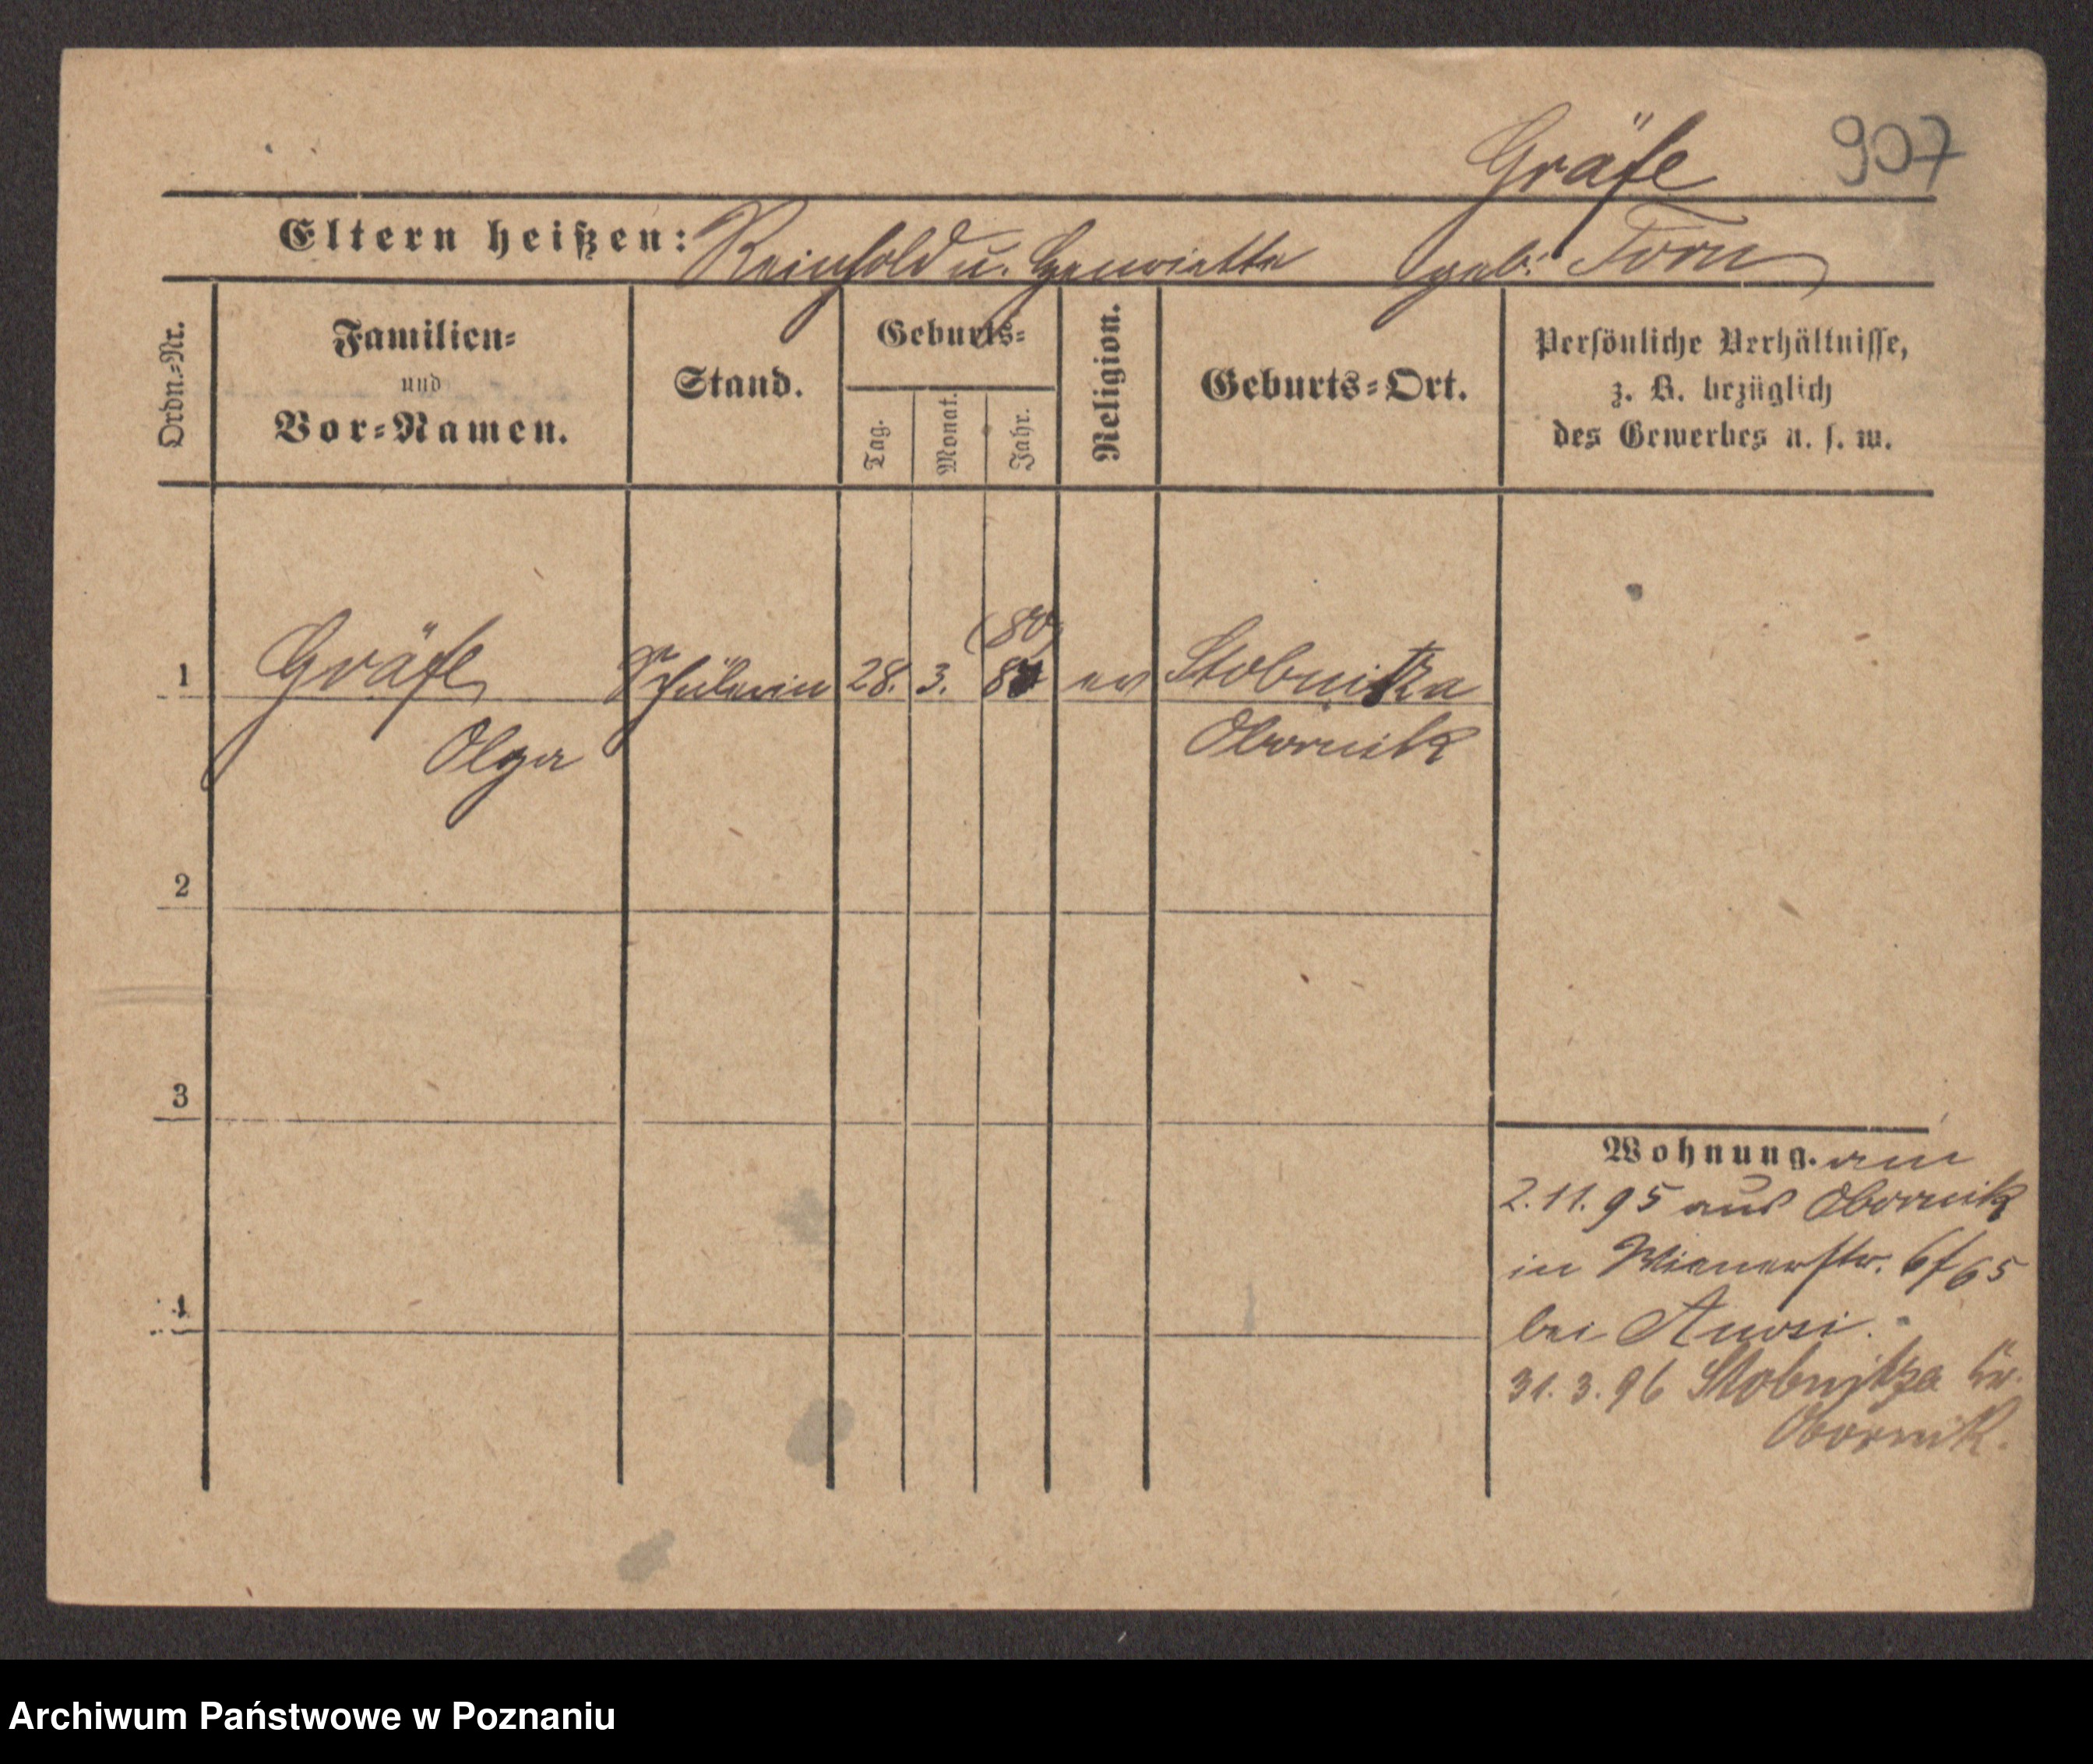 Gräfe 907
Eltern heißen: Reinhold u. Henriette geb. Torn
Ordn.-Nr.
Familien-
und
Vor-Namen.
Stand.
Geburts-
Tag.
Monat.
Jahr.
Religion.
Geburts-Ort.
Persönliche Verhältnisse,
z. B. bezüglich
des Gewerbes u. s. w.
(80)
1 Gräfe Schülerin 28. 3. ev Stobnitza
Olga Obornik
2
3
4
Wohnung. am
2.11.95 aus Obornik
in Wienerstr.
bei
31.3.96 Stobnitza Kr.
Obornik.
Archiwum Państwowe w Poznaniu